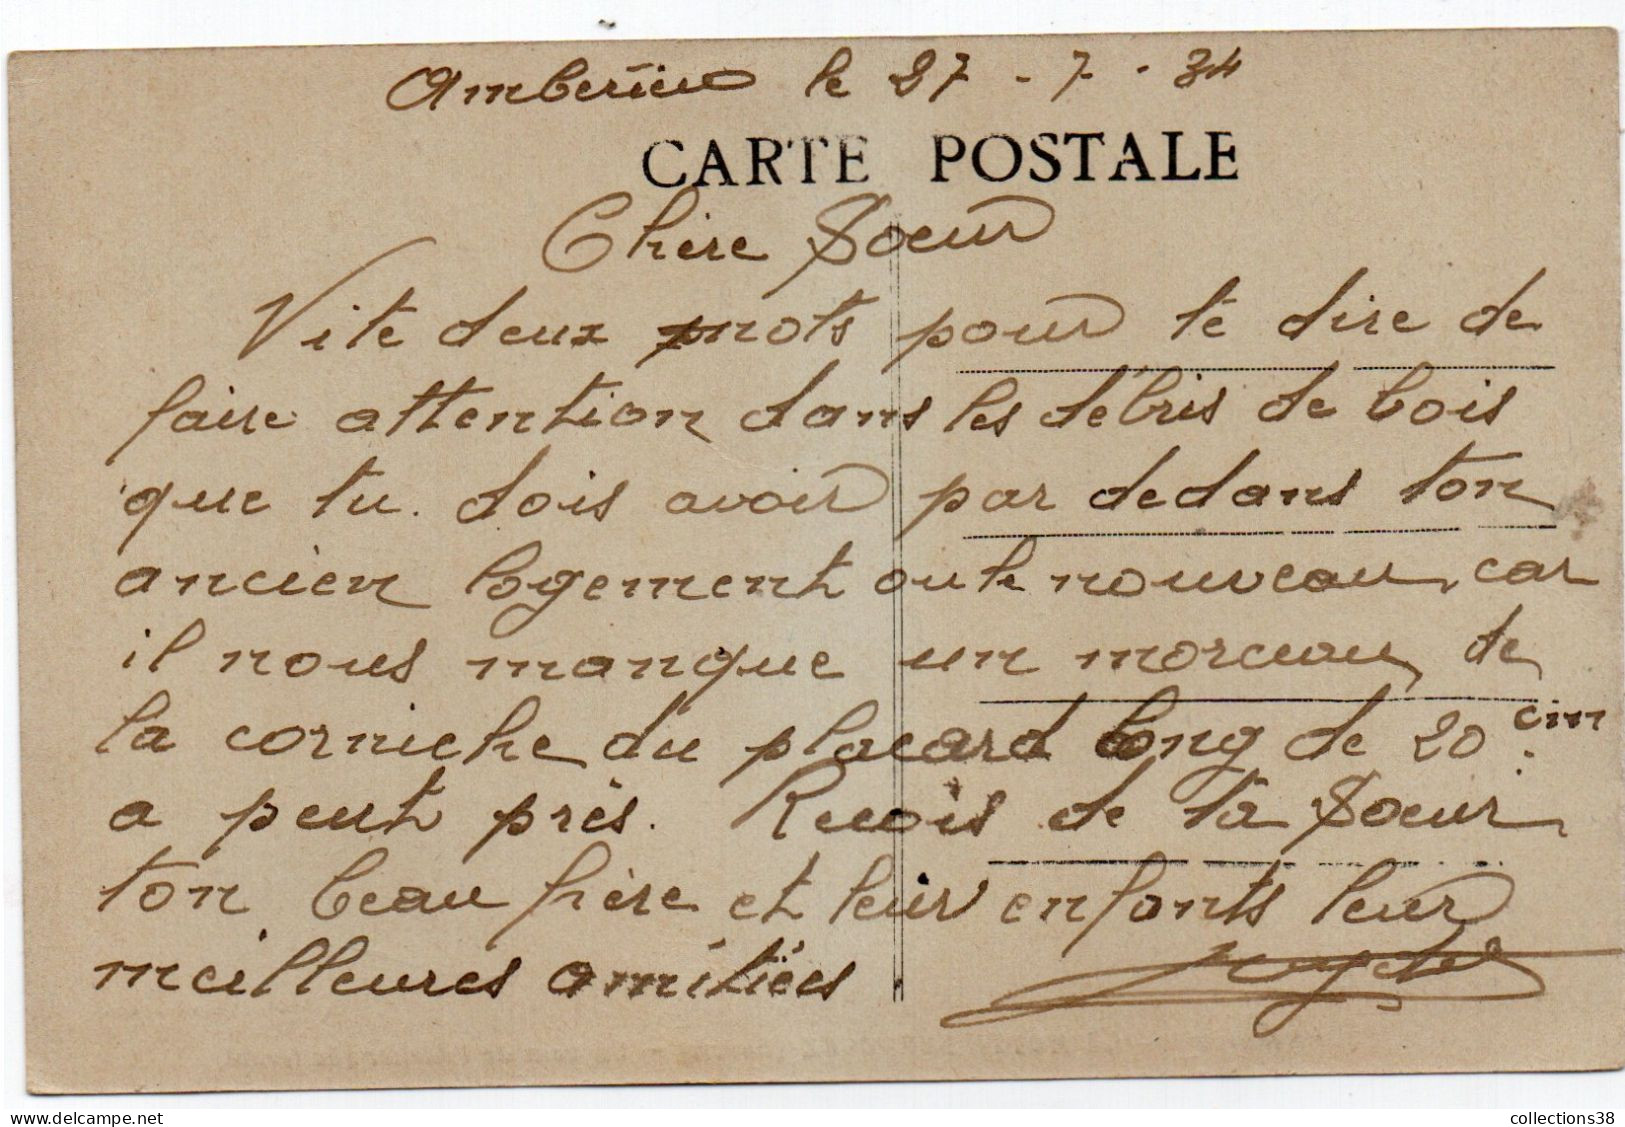 Amberieu le 27 - 7 - 34
CARTE POSTALE
Chère Soeur
Vite deux mots pour te dire de
faire attention dans les débris de bois
que tu dois avoir par dedans ton
ancien logement ou le nouveau, car
il nous manque un morceau de
la corniche du placard long de 20 cm
a peut près. Recois de ta Soeur
ton beau frère et leur enfants leur
meilleures amitiées
www.delcampe.net
collections38